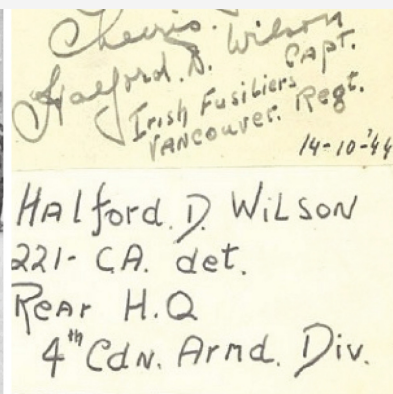 Cheerio.
Halford. D. Wilson
Capt.
Irish Fusiliers
VANCOUVER. Regt.
14-10-'44
HAlford. D. WiLSON
221- CA. det.
Rear H.Q
4th Cdn. Armd. Div.